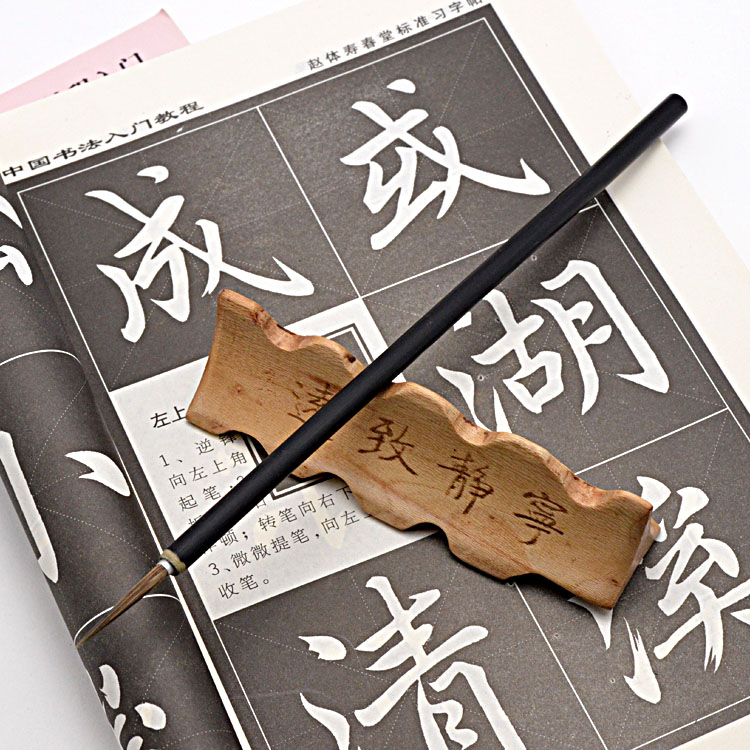 入门
赵体寿春堂标准习字帖
中国书法入门教程
成 或
湖
清
左上
1、逆锋
向左上角
起笔;2
顿;转笔向右下
3、微微提笔,向左
收笔。
寧静致遠